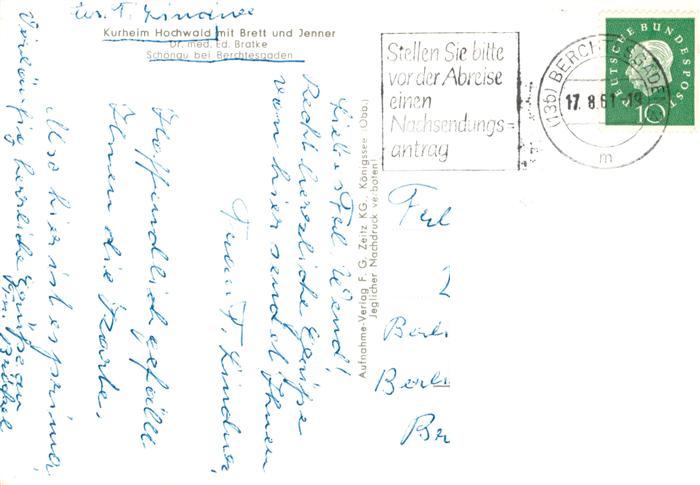 Wr. F. Lindner
Kurheim Hochwald mit Brett und Jenner
Dr. med. Ed. Bratke
Schönau bei Berchtesgaden
Stellen Sie bitte
vor der Abreise
einen
Nachsendungs=
antrag
(13b) BERCHTESGADEN
17.8.61-19
m
DEUTSCHE BUNDESPOST
10
Liebes Frl. Wend!
Recht herzliche Grüße
von hier sendet Ihnen
F. Lindner
Hoffentlich gefällt
Ihnen die Karte.
Also hier ist es prima,
Vorläufig herzliche Grüße an
Aufnahme-Verlag F. G. Zeitz KG., Königssee (Obb.)
Jeglicher Nachdruck verboten!
Frl
Berl
Berlin